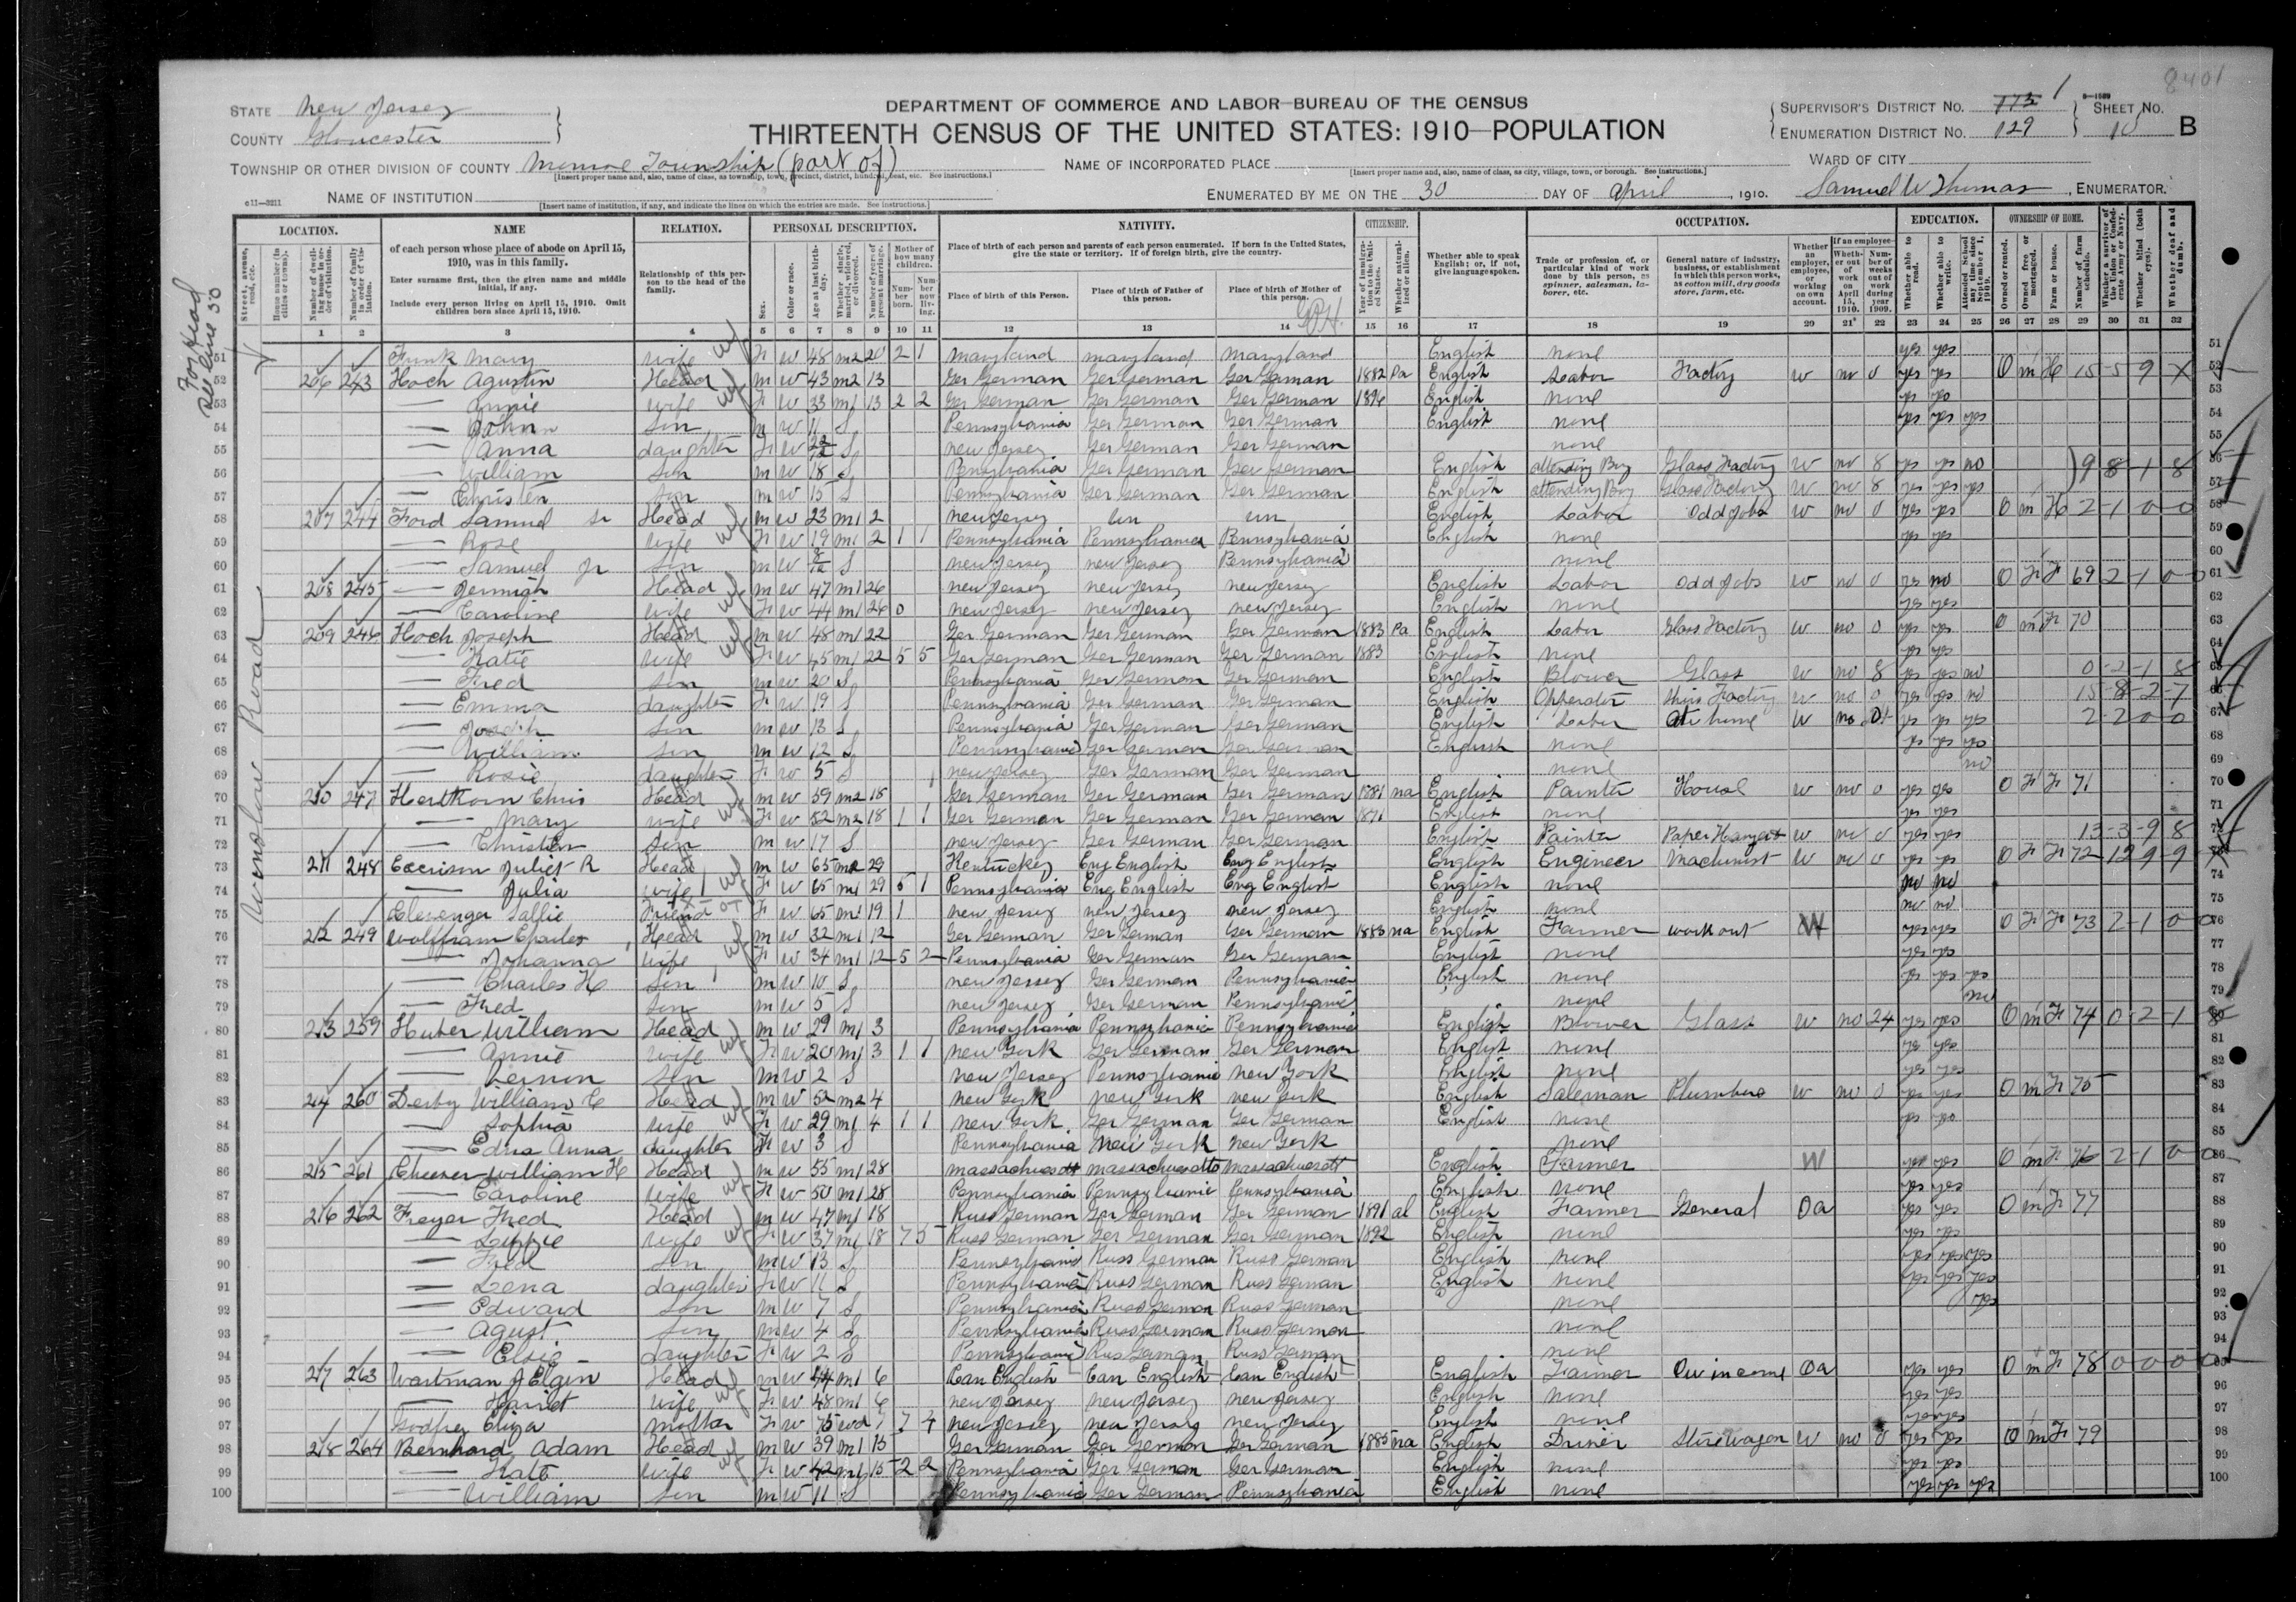 8401
STATE New Jersey
COUNTY Gloucester
DEPARTMENT OF COMMERCE AND LABOR—BUREAU OF THE CENSUS
THIRTEENTH CENSUS OF THE UNITED STATES: 1910—POPULATION
SUPERVISOR'S DISTRICT NO. 113 1
ENUMERATION DISTRICT NO. 129
SHEET NO. 10 B
TOWNSHIP OR OTHER DIVISION OF COUNTY Monroe Township (part of)
NAME OF INCORPORATED PLACE
WARD OF CITY
NAME OF INSTITUTION
ENUMERATED BY ME ON THE 30 DAY OF April, 1910. Samuel W Thomas, ENUMERATOR.
LOCATION. NAME RELATION. PERSONAL DESCRIPTION. NATIVITY. CITIZENSHIP. OCCUPATION. EDUCATION. OWNERSHIP OF HOME.
of each person whose place of abode on April 15, 1910, was in this family.
Enter surname first, then the given name and middle initial, if any.
Include every person living on April 15, 1910. Omit children born since April 15, 1910.
Relationship of this person to the head of the family.
Place of birth of each person and parents of each person enumerated. If born in the United States, give the state or territory. If of foreign birth, give the country.
Place of birth of this Person. Place of birth of Father of this person. Place of birth of Mother of this person.
Whether able to speak English; or, if not, give language spoken.
1 2 3 4 5 6 7 8 9 10 11 12 13 14 15 16 17 18 19 20 21 22 23 24 25 26 27 28 29 30 31 32
For Head See line 50
Winslow Road
51 Funk Mary wife F W 48 M2 20 2 1 Maryland Maryland Maryland English none yes yes
52 206 243 Hoch Agustin Head M W 43 M2 13 Ger German Ger German Ger German 1882 Pa English Labor Factory W no 0 yes yes O M H 15-5-9-X
53 — Annie wife F W 33 M1 13 2 2 Ger German Ger German Ger German 1896 English none yes yes
54 — John son M W 11 S Pennsylvania Ger German Ger German English none yes yes yes
55 — Anna daughter F W S New Jersey Ger German Ger German none
56 — William son M W 18 S Pennsylvania Ger German Ger German English attending Boy Glass Factory W no 8 yes yes no 9 8-1-8
57 — Christen son M W 15 S Pennsylvania Ger German Ger German English attending Boy Glass Factory W no 8 yes yes yes
58 207 244 Ford Samuel Sr Head M W 23 M1 2 New Jersey un un English Labor Odd Jobs W no 0 yes yes O M H 2-1-0-0
59 — Rose wife F W 19 M1 2 1 1 Pennsylvania Pennsylvania Pennsylvania English none yes yes
60 — Samuel Jr son M W 8/12 S New Jersey New Jersey Pennsylvania none
61 208 245 — Jermiah Head M W 47 M1 26 New Jersey New Jersey New Jersey English Labor Odd Jobs W no 0 yes no O F F 69 2-1-0-0
62 — Caroline wife F W 44 M1 26 0 New Jersey New Jersey New Jersey English none yes yes
63 209 246 Hoch Joseph Head M W 48 M1 22 Ger German Ger German Ger German 1883 Pa English Labor Glass Factory W no 0 yes yes O M F 70
64 — Katie wife F W 45 M1 22 5 5 Ger German Ger German Ger German 1883 English none yes yes
65 — Fred son M W 20 S Pennsylvania Ger German Ger German English Blower Glass W no 8 yes yes no 0-2-1-8
66 — Emma daughter F W 19 S Pennsylvania Ger German Ger German English Opperator Factory W no 0 yes yes no 15-8-2-7
67 — Joseph son M W 13 S Pennsylvania Ger German Ger German English Labor At home W no 0 yes yes yes 2-2-0-0
68 — William son M W 12 S Pennsylvania Ger German Ger German English none yes yes yes
69 — Rosie daughter F W 5 S New Jersey Ger German Ger German none no
70 210 247 Hertkorn Chris Head M W 59 M2 18 Ger German Ger German Ger German 1881 na English Painter House W no 0 yes yes O F F 71
71 — Mary wife F W 52 M2 18 1 1 Ger German Ger German Ger German 1871 English none yes yes
72 — Christen son M W 17 S New Jersey Ger German Ger German English Painter Paper Hanger W no 0 yes yes 13-3-9 8
73 211 248 R Head M W 65 M2 29 Kentuckey Eng English Eng English English Engineer Machinist W no 0 yes yes O F F 72 12 9-9-X
74 — Julia wife F W 65 M1 29 5 1 Pennsylvania Eng English Eng English English none no no
75 Clevenger Sallie Friend F W 65 M1 19 1 New Jersey New Jersey New Jersey English none no no
76 212 249 Wolffram Charles Head M W 32 M1 12 Ger German Ger German Ger German 1883 na English Farmer work out W yes yes O F F 73 2-1-0-0
77 — Johanna wife F W 34 M1 12 5 2 Pennsylvania Ger German Ger German English none yes yes
78 — Charles H son M W 10 S New Jersey Ger German Pennsylvania English none yes yes yes
79 — Fred son M W 5 S New Jersey Ger German Pennsylvania none no
80 213 259 Huber William Head M W 29 M1 3 Pennsylvania Pennsylvania Pennsylvania English Blower Glass W no 24 yes yes O M F 74 0-2-1-8
81 — Annie wife F W 20 M1 3 1 1 New York Ger German Ger German English none yes yes
82 — Vernon son M W 2 S New Jersey Pennsylvania New York English none yes yes
83 214 260 Derby William C Head M W 52 M2 4 New York New York New York English Saleman Plumbers W no 0 yes yes O M F 75
84 — Sophia wife F W 29 M1 4 1 1 New York Ger German Ger German English none yes yes
85 — Edna Anna daughter F W 3 S Pennsylvania New York New York none
86 215 261 Cheever William H Head M W 55 M1 28 Massachusett Massachusetts Massachusett English Farmer W yes yes O M F 76 2-1-0-0
87 — Caroline wife F W 50 M1 28 Pennsylvania Pennsylvania Pennsylvania English none yes yes
88 216 262 Freyer Fred Head M W 47 M1 18 Russ German Ger German Ger German 1891 al English Farmer General Oa yes yes O M F 77
89 — Lizzie wife F W 37 M1 18 7 5 Russ German Ger German Ger German 1892 English none yes yes
90 — Fred son M W 13 S Pennsylvania Russ German Russ German English none yes yes yes
91 — Lena daughter F W 11 S Pennsylvania Russ German Russ German English none yes yes yes
92 — Edward son M W 7 S Pennsylvania Russ German Russ German none yes
93 — Agust son M W 4 S Pennsylvania Russ German Russ German none
94 — Elsie daughter F W 2 S Pennsylvania Rus German Russ German none
95 217 263 Wartman J Elgin Head M W 44 M1 6 Can English Can English Can English English Farmer Own income Oa yes yes O M F 78 0-0-0-0
96 — Harriet wife F W 48 M1 6 New Jersey New Jersey New Jersey English none yes yes
97 Godfrey Eliza mother F W 75 wd 7 4 New Jersey New Jersey New Jersey English none yes yes
98 218 264 Bernhard Adam Head M W 39 M1 15 Ger German Ger German Ger German 1885 na English Driver Store Wagon W no 0 yes yes O M F 79
99 — Kate wife F W 42 M1 15 2 2 Pennsylvania Ger German Ger German English none yes yes
100 — William son M W 11 S Pennsylvania Ger German Pennsylvania English none yes yes yes